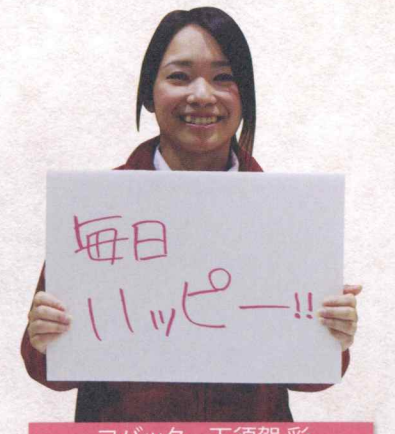 毎日
ハッピー!!